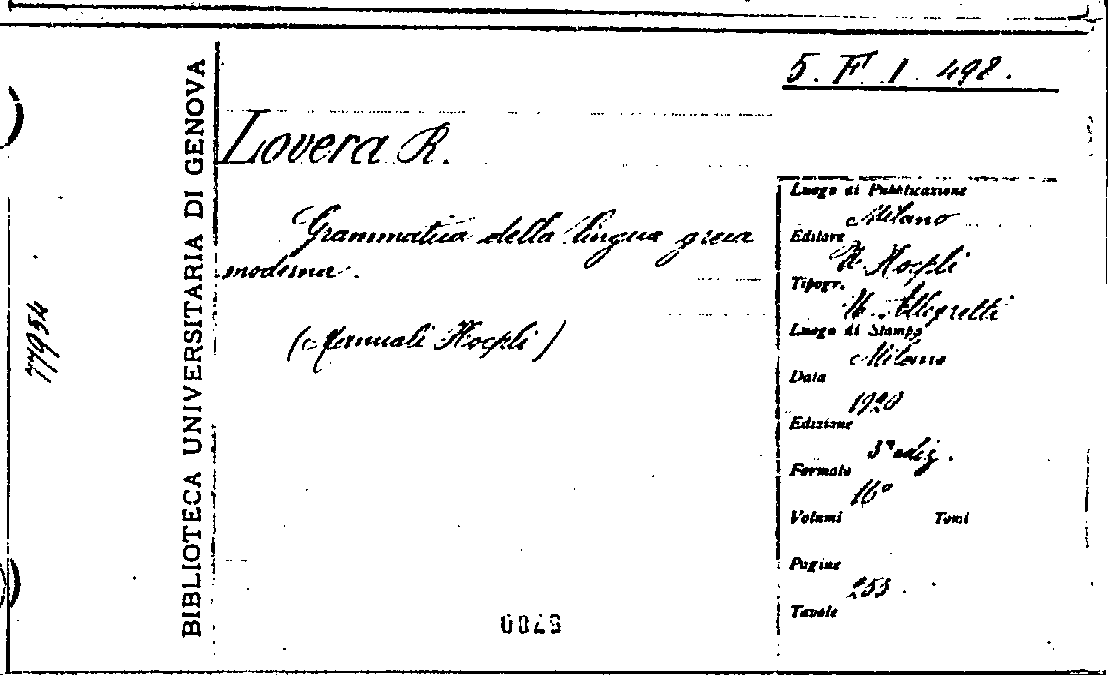 5. F. 1. 498.
BIBLIOTECA UNIVERSITARIA DI GENOVA
77954
Lovera R.
Grammatica della lingua greca
moderna.
(Manuali Hoepli)
Luogo di Pubblicazione
Milano
Editore
U. Hoepli
Tipogr.
U. Allegretti
Luogo di Stampa
Milano
Data
1920
Edizione
3ª ediz.
Formato
16°
Volumi Tomi
Pagine
253.
Tavole